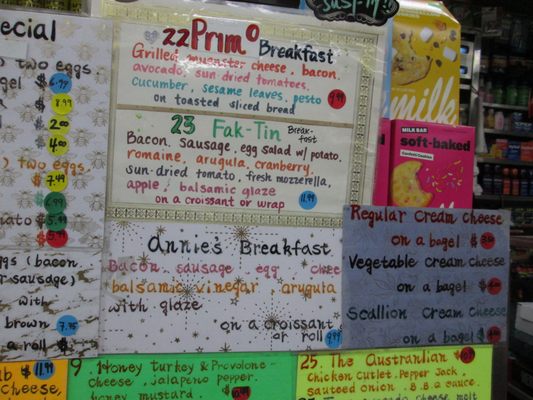 ecial
two eggs
gel $ 6.79
$ 8.99
$ 2.00
$ 4.00
two eggs
$ 7.49
$ 6.49
ato $
$
gs (bacon
or sausage)
with
brown 7.75
a roll $
$ 11.99
Cheese,
22 Primo Breakfast
Grilled muenster cheese, bacon,
avocado, sun-dried tomatoes,
cucumber, sesame leaves, pesto
on toasted sliced bread
23 Fak-Tin Break-
fast
Bacon, sausage, egg salad w/ potato,
romaine, arugula, cranberry,
sun-dried tomato, fresh mozzerella,
apple, balsamic glaze
on a croissant or wrap 11.99
Annie's Breakfast
Bacon sausage egg chee
balsamic vinegar, arugula
with glaze
on a croissant
or roll 9.99
Regular Cream Cheese
on a bagel $
Vegetable Cream Cheese
on a bagel $
Scallion Cream Cheese
on a bagel $
9. Honey turkey & Provolone
cheese, jalapeno pepper,
honey mustard.
25. The Austranlian $
Chicken Cutlet, Pepper Jack,
sauteed onion, B.B.Q sauce.
milk
MILK BAR
soft-baked
Confetti Cookies